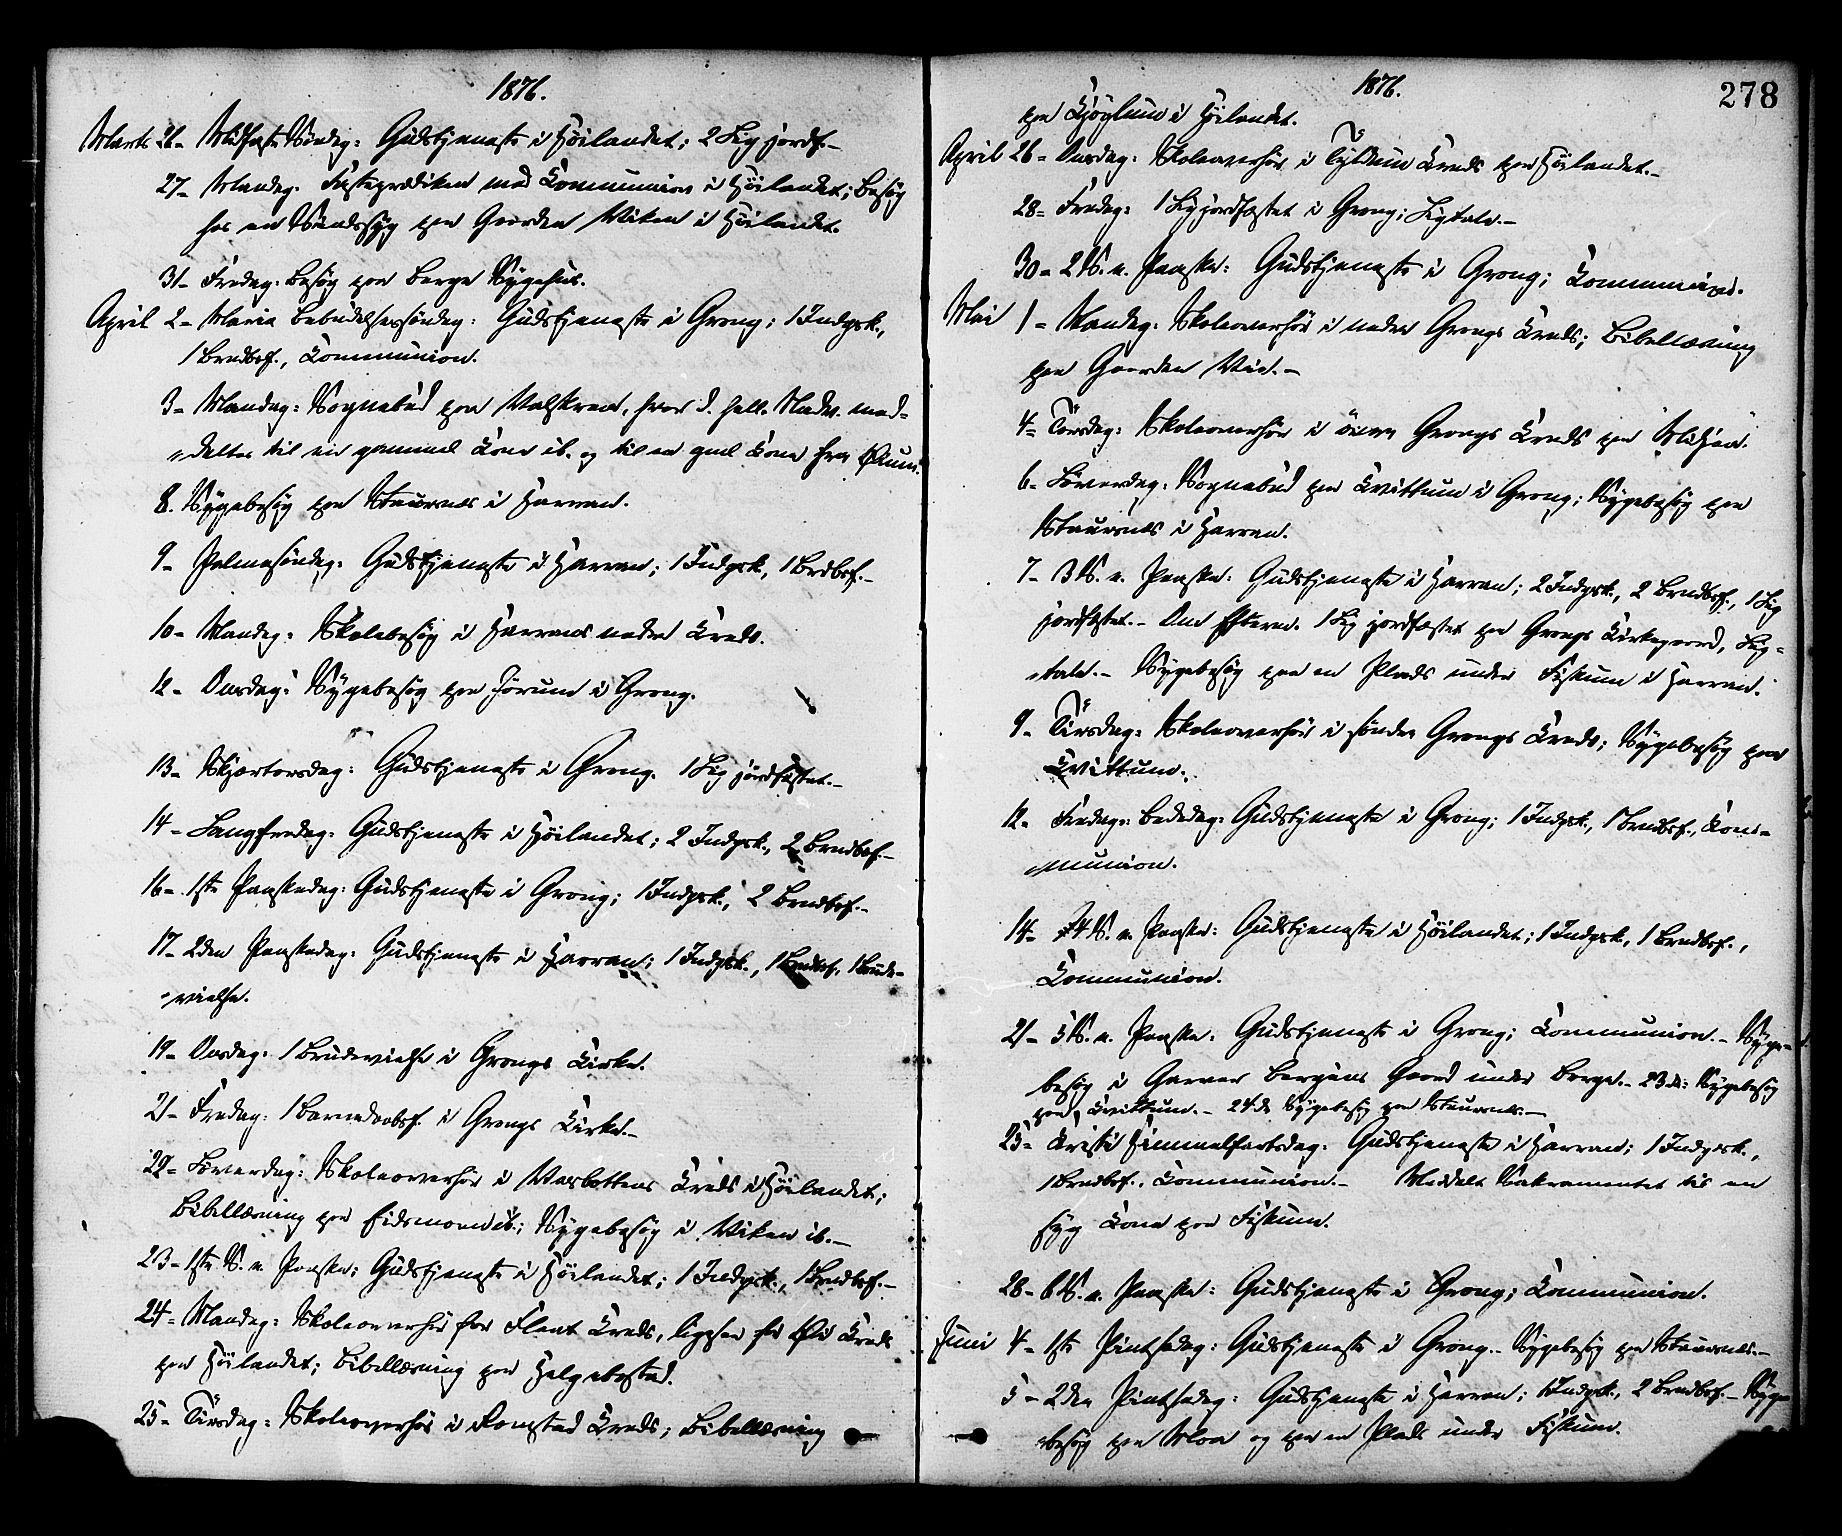 1876.
Marts 26- Midfaste Søndag: Gudstjeneste i Høilandet; 2 Lig jordf.-
27- Mandag. Fasteprædiken med Communion i Høilandet; Besøg
hos en Sindssyg paa Gaarden Viken i Høilandet.
31- Fredag: Besøg paa Berge Sygehus.
April 2- Maria Bebudelsessøndag: Gudstjeneste i Grong; 1 Indgsk.,
1 Brndbsf., Communion.
3- Mandag: Sognebud paa Valskraa, hvor d. hell. Nadv. med-
deltes til en gammel Kone ib. og til en gml Kone fra
8. Sygebesøg paa Staurnes i Harran.
9- Palmesøndag: Gudstjeneste i Harran; 1 Indgsk., 1 Brdbsf.-
10- Mandag: Skolebesøg i Harrans nedre Kreds.
12- Onsdag: Sygebesøg paa Jørum i Grong.
13- Skjærtorsdag: Gudstjeneste i Grong. 1 Lig jordfæstet.-
14- Langfredag: Gudstjeneste i Høilandet; 2 Indgsk., 2 Brndbsf.-
16- 1ste Paaskedag: Gudstjeneste i Grong; 1 Indgsk., 2 Brndbsf.-
17- 2den Paaskedag: Gudstjeneste i Harran; 1 Indgsk., 1 Brndbsf., 1 Brude-
vielse.
19- Onsdag: 1 Brudevielse i Grongs Kirke.
21- Fredag: 1 Barnedaabsf. i Grongs Kirke.-
22- Løverdag: Skoleoverhør i Vasbottens Kreds i Høilandet;
Bibellæsning paa Eidsmoen ib.; Sygebesøg i Viken ib.-
23- 1ste S. e. Paaske: Gudstjeneste i Høilandet; 1 Indgsk., 1 Brndbsf.-
24- Mandag: Skoleoverhør for Flaat Kreds, ligesaa for Øie Kreds
paa Høilandet; Bibellæsning paa Helgebostad.
25- Tirsdag: Skoleoverhør i Romstad Kreds; Bibellæsning
1876.
278
paa Kjøglum i Høilandet.
April 26- Onsdag: Skoleoverhør i Tyldum Kreds paa Høilandet.-
28- Fredag: 1 Lig jordfæstet i Grong; Ligtale.-
30- 2 S. e. Paaske: Gudstjeneste i Grong; Communion.
Mai 1- Mandag: Skoleoverhør i nedre Grongs Kreds; Bibellæsning
paa Gaarden Vie.-
4- Torsdag: Skoleoverhør i øvre Grongs Kreds paa
6- Løverdag: Sognebud paa Kvittum i Grong; Sygebesøg paa
Staurnes i Harran.
7- 3 S. e. Paaske: Gudstjeneste i Harran; 2 Indgsk., 2 Brndbsf., 1 Lig
jordfæstet.- Om Efterm. 1 Lig jordfæstet paa Grongs Kirkegaard, Lig-
tale.- Sygebesøg paa en Plads under Fiskum i Harran.
9- Tirsdag: Skoleoverhør i søndre Grongs Kreds; Sygebesøg paa
Kvittum.
12- Fredag: Bededag: Gudstjeneste i Grong; 1 Indgsk., 1 Brndbsf., Com-
munion.
14- 4 S. e. Paaske: Gudstjeneste i Høilandet; 1 Indgsk., 1 Brndbsf.,
Communion.
21- 5 S. e. Paaske: Gudstjeneste i Grong; Communion.- Syge-
besøg i Garver Bergins Gaard under Berge.- 23de: Sygebesøg
paa Kvittum.- 24de Sygebesøg paa Staurnes.-
25- Kristi Himmelfartsdag: Gudstjeneste i Harran; 1 Indgsk.,
1 Brndbsf., Communion.- Meddelt Sakramentet til en
syg Kone paa Fiskum.
28- 6 S. e. Paaske: Gudstjeneste i Grong; Communion.
Juni 4- 1ste Pintsedag: Gudstjeneste i Grong.- Sygebesøg paa Staurnes.-
5- 2den Pintsedag: Gudstjeneste i Harran; 1 Indgsk., 2 Brndbsf.- Syge-
besøg paa Moa og paa en Plads under Fiskum.